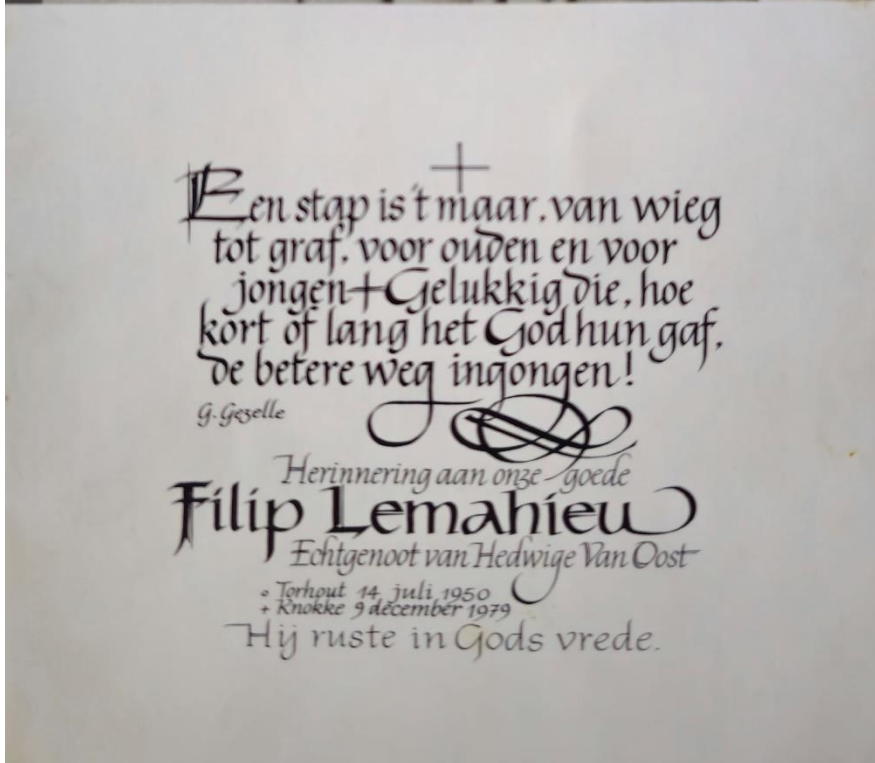 +
Een stap is 't maar, van wieg
tot graf, voor ouden en voor
jongen + Gelukkig die, hoe
kort of lang het God hun gaf,
de betere weg ingongen!
G. Gezelle
Herinnering aan onze goede
Filip Lemahieu
Echtgenoot van Hedwige Van Oost
° Torhout 14 juli 1950
+ Knokke 9 december 1979
Hij ruste in Gods vrede.